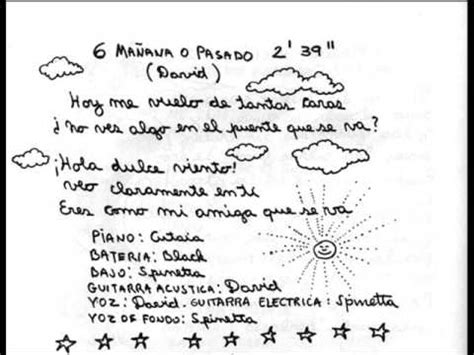 6 MAÑANA O PASADO 2' 39"
(David)
Hoy me vuelo de tantas caras
¿no ves algo en el puente que se va?
¡Hola dulce viento!
veo claramente en ti
Eres como mi amiga que se va
PIANO: Cutaia
BATERIA: Black
BAJO: Spinetta
GUITARRA ACUSTICA: David
VOZ: David. GUITARRA ELECTRICA: Spinetta
VOZ DE FONDO: Spinetta